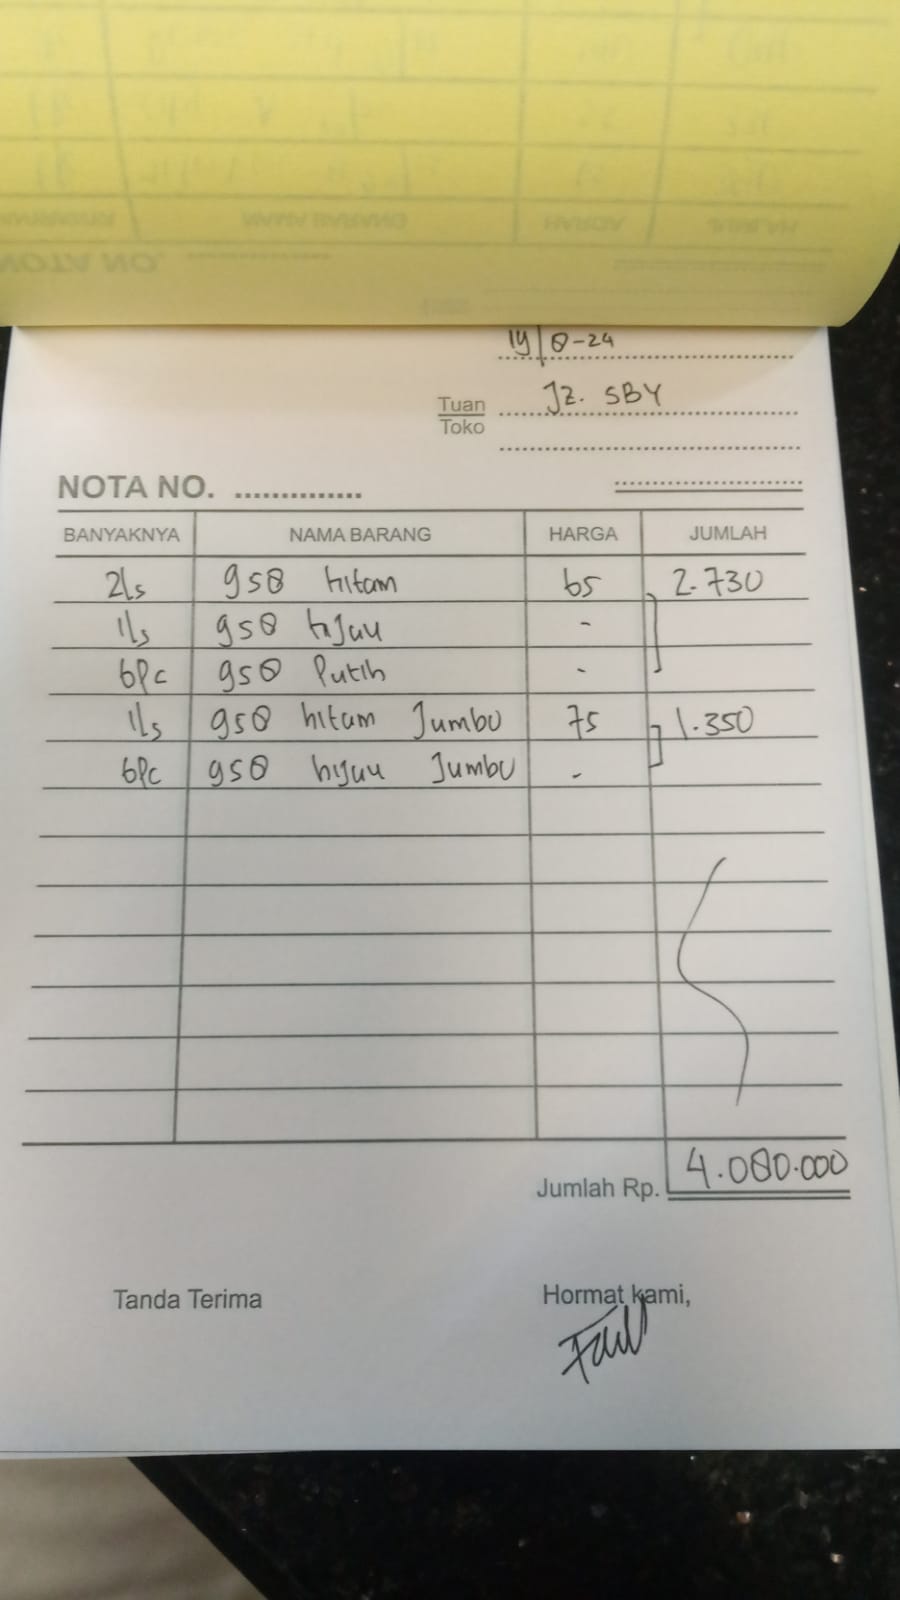 19/8-24
Tuan Jz. SBY
Toko
NOTA NO. ..............
BANYAKNYA NAMA BARANG HARGA JUMLAH
2ls 958 hitam 65 2.730
1ls 958 hijau -
6Pc 958 Putih -
1ls 958 hitam Jumbo 75 1.350
6Pc 958 hijau Jumbo -
Jumlah Rp. 4.080.000
Tanda Terima Hormat kami,